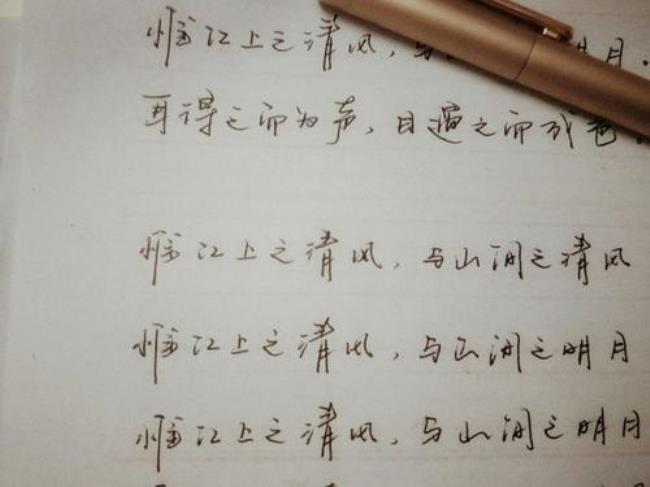 惟江上之清风，与明月．
耳得之而为声，目遇之而成色．
惟江上之清风，与山间之清风
惟江上之清风，与山间之明月
惟江上之清风，与山间之明月